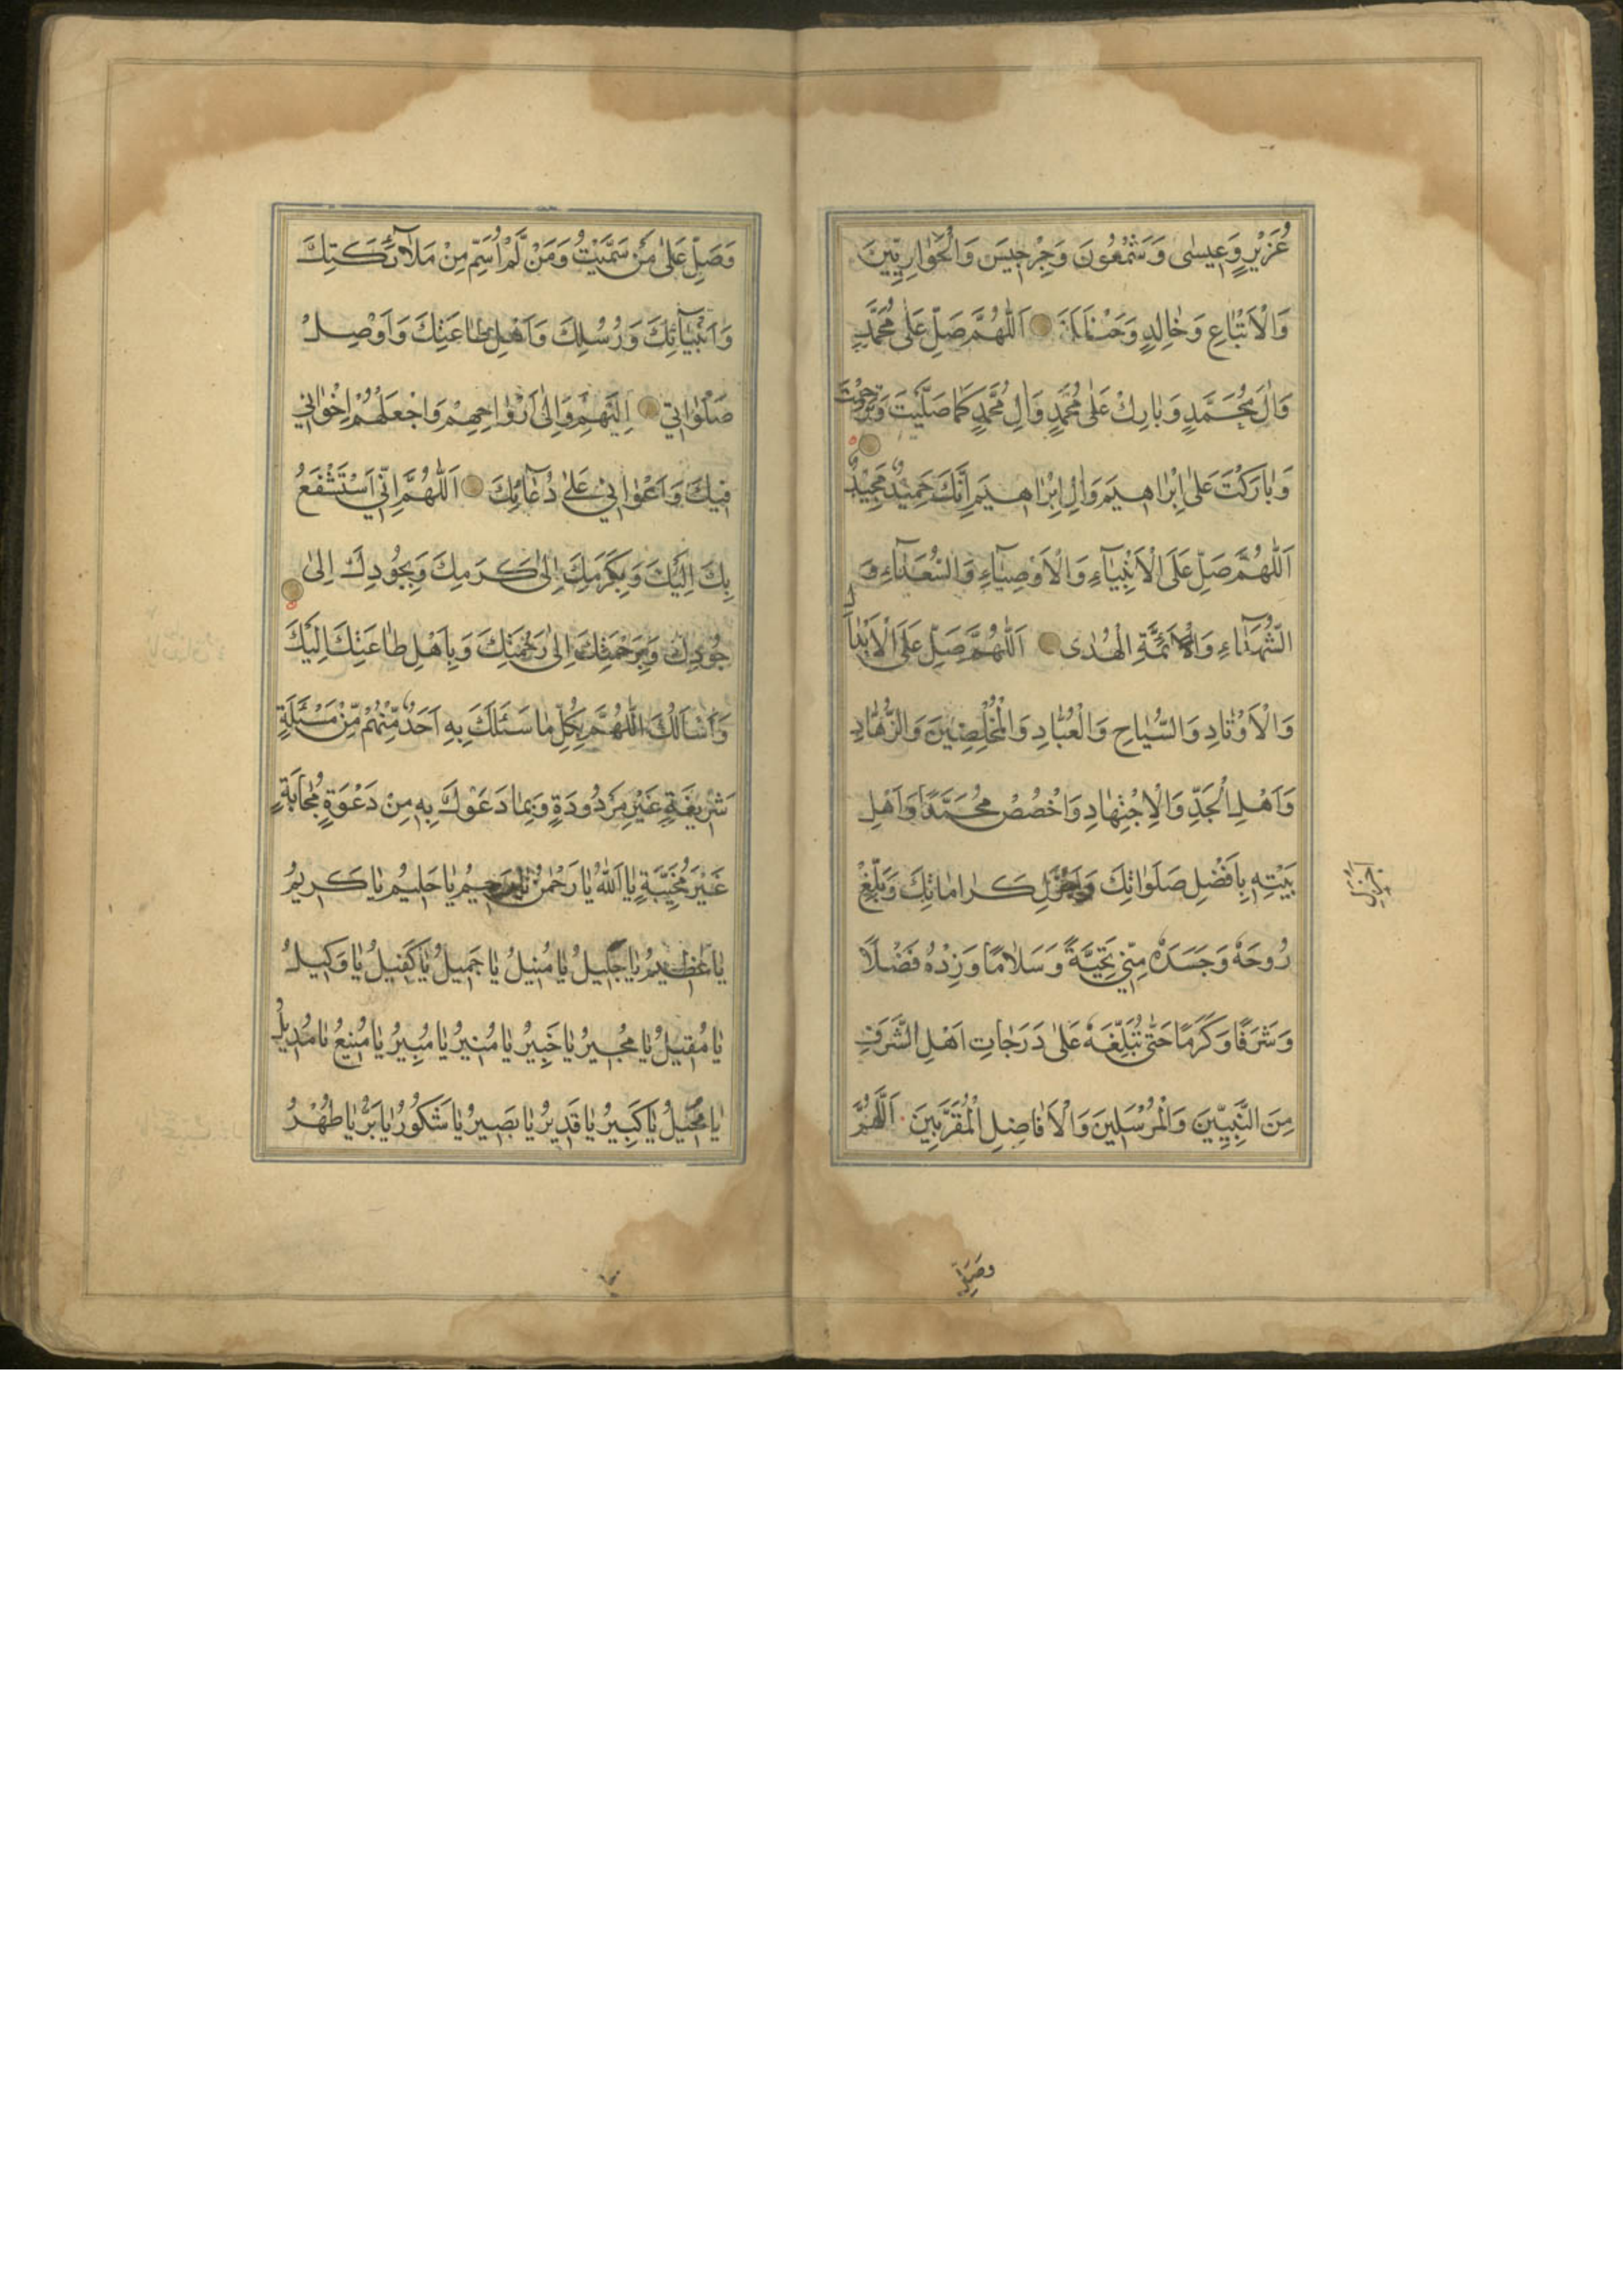 عُزَيْرٍ وَعِيسٰى وَشَمْعُونَ وَجِرْجِيسَ وَالْحَوٰارِيِّينَ
وَالْاَتْبٰاعِ وَخٰالِدٍ وَحَنْظَلَةَ اَللّٰهُمَّ صَلِّ عَلٰى مُحَمَّدٍ
وَاٰلِ مُحَمَّدٍ وَبٰارِكْ عَلٰى مُحَمَّدٍ وَاٰلِ مُحَمَّدٍ كَمٰا صَلَّيْتَ وَتَرَحَّمْتَ
وَبٰارَكْتَ عَلٰى اِبْرٰاهِيمَ وَاٰلِ اِبْرٰاهِيمَ اِنَّكَ حَمِيدٌ مَجِيدٌ
اَللّٰهُمَّ صَلِّ عَلَى الْاَنْبِيٰٓاءِ وَالْاَوْصِيٰٓاءِ وَالسُّعَدٰٓاءِ وَ
الشُّهَدٰٓاءِ وَالْاَئِمَّةِ الْهُدٰى اَللّٰهُمَّ صَلِّ عَلَى الْاَبْدٰالِ
وَالْاَوْتٰادِ وَالسُّيّٰاحِ وَالْعُبّٰادِ وَالْمُخْلِصِينَ وَالزُّهّٰادِ
وَاَهْلِ الْجَدِّ وَالْاِجْتِهٰادِ وَاخْصُصْ مُحَمَّدًا وَاَهْلِ
بَيْتِهِ بِاَفْضَلِ صَلَوٰاتِكَ وَاَجْزَلِ كَرٰامٰاتِكَ وَبَلِّغْ
اَجْزَلِ
رُوحَهُ وَجَسَدَهُ مِنِّي تَحِيَّةً وَسَلٰامًا وَزِدْهُ فَضْلًا
وَشَرَفًا وَكَرَمًا حَتّٰى تُبَلِّغَهُ عَلٰى دَرَجٰاتِ اَهْلِ الشَّرَفِ
مِنَ النَّبِيِّينَ وَالْمُرْسَلِينَ وَالْاَفٰاضِلِ الْمُقَرَّبِينَ اَللّٰهُمَّ
وَصَلِّ
وَصَلِّ عَلٰى مَنْ سَمَّيْتُ وَمَنْ لَمْ اُسَمِّ مِنْ مَلٰٓائِكَتِكَ
وَاَنْبِيٰٓائِكَ وَرُسُلِكَ وَاَهْلِ طٰاعَتِكَ وَاَوْصِلْ
صَلَوٰاتِي اِلَيْهِمْ وَاِلٰى اَرْوٰاحِهِمْ وَاجْعَلْهُمْ اِخْوٰانِي
فِيكَ وَاَعْوٰانِي عَلٰى دُعٰٓائِكَ اَللّٰهُمَّ اِنِّي اَسْتَشْفِعُ
بِكَ اِلَيْكَ وَبِكَرَمِكَ اِلٰى كَرَمِكَ وَبِجُودِكَ اِلٰى
جُودِكَ وَبِرَحْمَتِكَ اِلٰى رَحْمَتِكَ وَبِاَهْلِ طٰاعَتِكَ اِلَيْكَ
وَاَسْاَلُكَ اللّٰهُمَّ بِكُلِّ مٰا سَئَلَكَ بِهِ اَحَدٌ مِنْهُمْ مِنْ مَسْئَلَةٍ
شَرِيفَةٍ غَيْرِ مَرْدُودَةٍ وَبِمٰا دَعَوْكَ بِهِ مِنْ دَعْوَةٍ مُجٰابَةٍ
غَيْرَ مُخَيَّبَةٍ يٰا اَللّٰهُ يٰا رَحْمٰنُ يٰا رَحِيمُ يٰا حَلِيمُ يٰا كَرِيمُ
يٰا عَظِيمُ يٰا جَلِيلُ يٰا مُنِيلُ يٰا جَمِيلُ يٰا كَفِيلُ يٰا وَكِيلُ
يٰا مُقِيلُ يٰا مُجِيرُ يٰا خَبِيرُ يٰا مُنِيرُ يٰا مُبِيرُ يٰا مَنِيعُ يٰا مُدِيلُ
يٰا مُحِيلُ يٰا كَبِيرُ يٰا قَدِيرُ يٰا بَصِيرُ يٰا شَكُورُ يٰا بَرُّ يٰا طُهْرُ